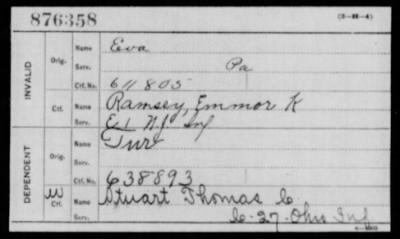 876358
(3-M-4)
INVALID
Orig.
Name
Eva
Serv.
Pa
Ctf. No.
611805
Ctf.
Name
Ramsey, Emmor K
Serv.
E 1 N.J. Inf
DEPENDENT
Orig.
Name
Serv.
Ctf. No.
638893
W
Ctf.
Name
Stuart Thomas C.
Serv.
C. 27. Ohio Inf